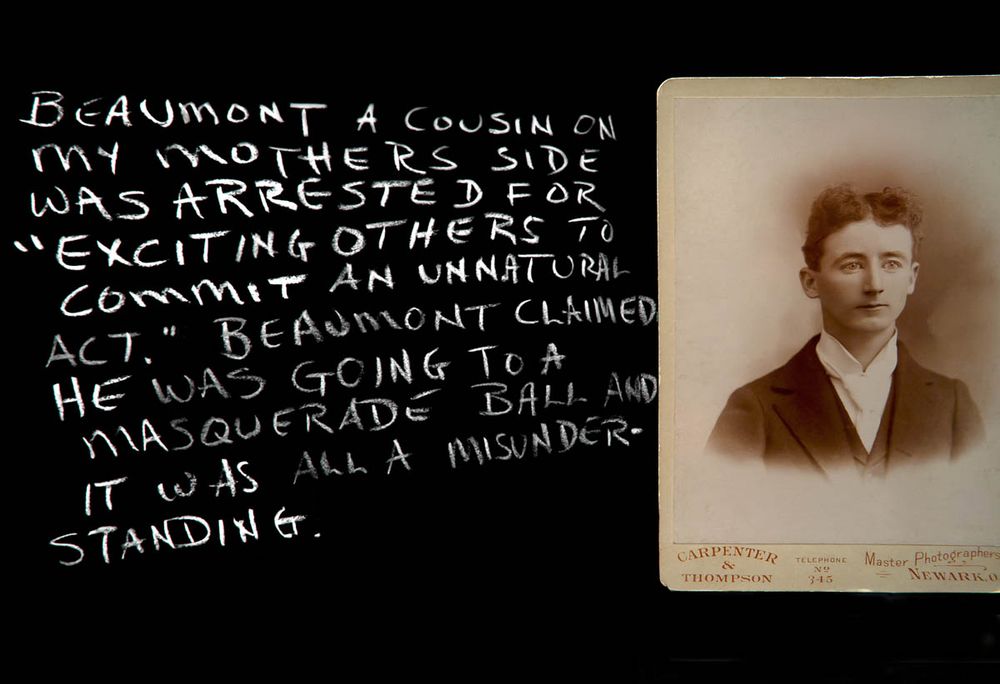 BEAUMONT A COUSIN ON
MY MOTHERS SIDE
WAS ARRESTED FOR
"EXCITING OTHERS TO
COMMIT AN UNNATURAL
ACT." BEAUMONT CLAIMED
HE WAS GOING TO A
MASQUERADE BALL AND
IT WAS ALL A MISUNDER-
STANDING.
CARPENTER
&
THOMPSON
TELEPHONE
No
345
Master Photographers
NEWARK.O